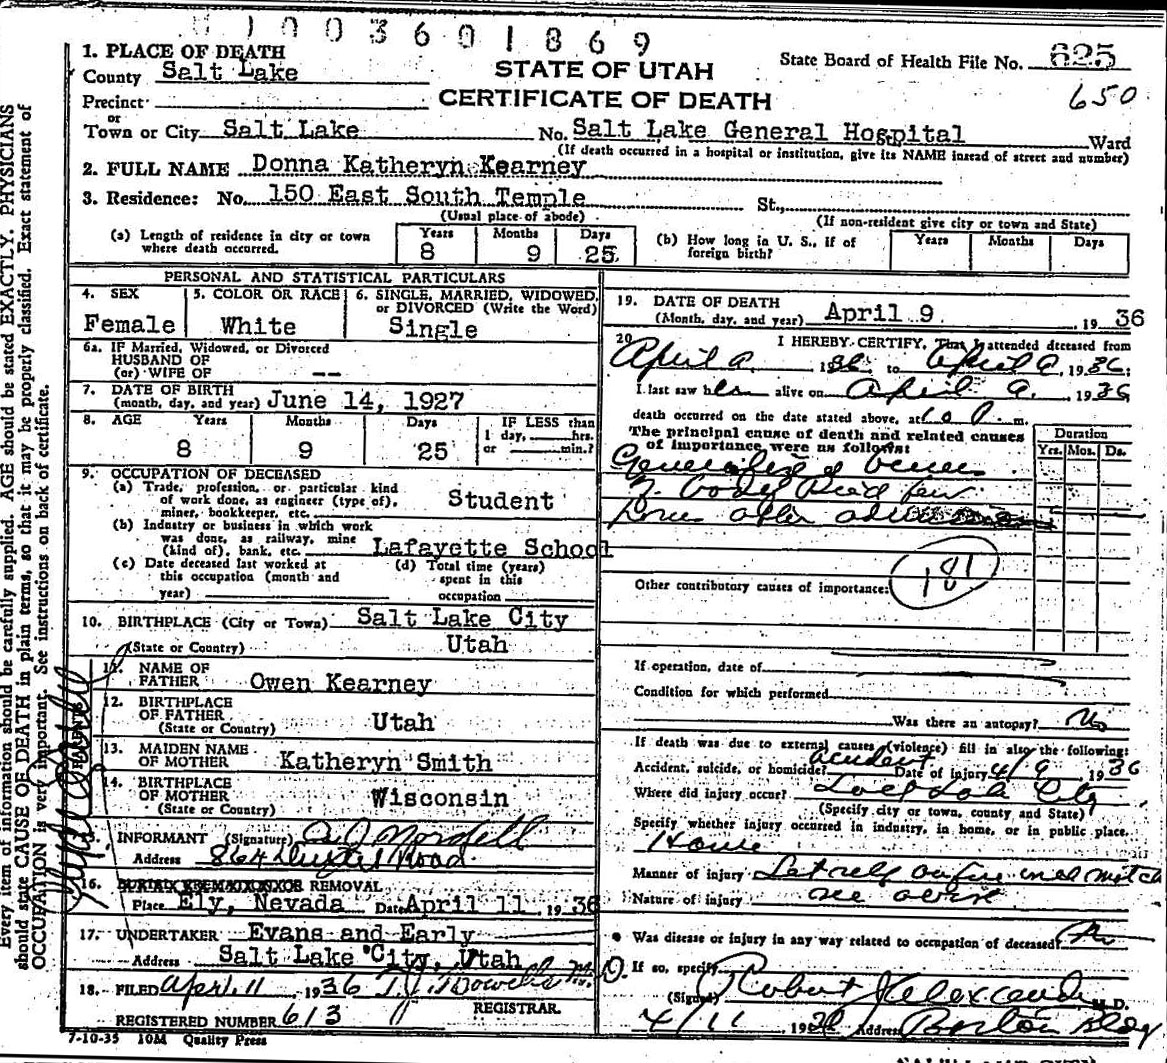 1003601869
1. PLACE OF DEATH
County Salt Lake
STATE OF UTAH
State Board of Health File No. 625
650
Precinct
CERTIFICATE OF DEATH
or
Town or City Salt Lake No. Salt Lake General Hospital Ward
(If death occurred in a hospital or institution, give its NAME instead of street and number)
2. FULL NAME Donna Katheryn Kearney
3. Residence: No. 150 East South Temple St.,
(Usual place of abode) (If non-resident give city or town and State)
(a) Length of residence in city or town where death occurred. Years 8 Months 9 Days 25
(b) How long in U. S., if of foreign birth? Years Months Days
PERSONAL AND STATISTICAL PARTICULARS
4. SEX Female
5. COLOR OR RACE White
6. SINGLE, MARRIED, WIDOWED, or DIVORCED (Write the Word) Single
6a. IF Married, Widowed, or Divorced
HUSBAND OF
(or) WIFE OF --
7. DATE OF BIRTH
(month, day, and year) June 14, 1927
8. AGE Years 8 Months 9 Days 25
IF LESS than 1 day, hrs. or min.?
9. OCCUPATION OF DECEASED
(a) Trade, profession, or particular kind of work done, as engineer (type of), miner, bookkeeper, etc. Student
(b) Industry or business in which work was done, as railway, mine (kind of), bank, etc. Lafayette School
(c) Date deceased last worked at this occupation (month and year)
(d) Total time (years) spent in this occupation
10. BIRTHPLACE (City or Town) Salt Lake City
(State or Country) Utah
11. NAME OF FATHER Owen Kearney
12. BIRTHPLACE OF FATHER
(State or Country) Utah
13. MAIDEN NAME OF MOTHER Katheryn Smith
14. BIRTHPLACE OF MOTHER
(State or Country) Wisconsin
INFORMANT (Signature)
Address 864
16. BURIAL CREMATION OR REMOVAL
Place Ely, Nevada Date April 11 1936
17. UNDERTAKER Evans and Early
Address Salt Lake City, Utah
18. FILED April 11 1936
REGISTRAR.
REGISTERED NUMBER 613
7-10-35 10M Quality Press
19. DATE OF DEATH
(Month, day, and year) April 9 1936
20. I HEREBY CERTIFY, That I attended deceased from
April 9. 1936 to April 9, 1936;
I last saw her alive on April 9. 1936
death occurred on the date stated above, at m.
The principal cause of death and related causes of importance were as follows:
Duration
Yrs. Mos. Ds.
Generalized burns
of body Died few
hours after
Other contributory causes of importance: 181
If operation, date of
Condition for which performed
Was there an autopsy? No
If death was due to external causes (violence) fill in also the following:
Accident, suicide, or homicide? accident Date of injury 4/9 1936
Where did injury occur? Salt Lake City
(Specify city or town, county and State)
Specify whether injury occurred in industry, in home, or in public place.
Home
Manner of injury Set self on fire match
Nature of injury see above
Was disease or injury in any way related to occupation of deceased? No
If so, specify
(Signed) Robert Alexander M.D.
4/11 1936 Address Boston Bldg
Every item of information should be carefully supplied. AGE should be stated EXACTLY. PHYSICIANS
should state CAUSE OF DEATH in plain terms, so that it may be properly classified. Exact statement of
OCCUPATION is very important. See instructions on back of certificate.